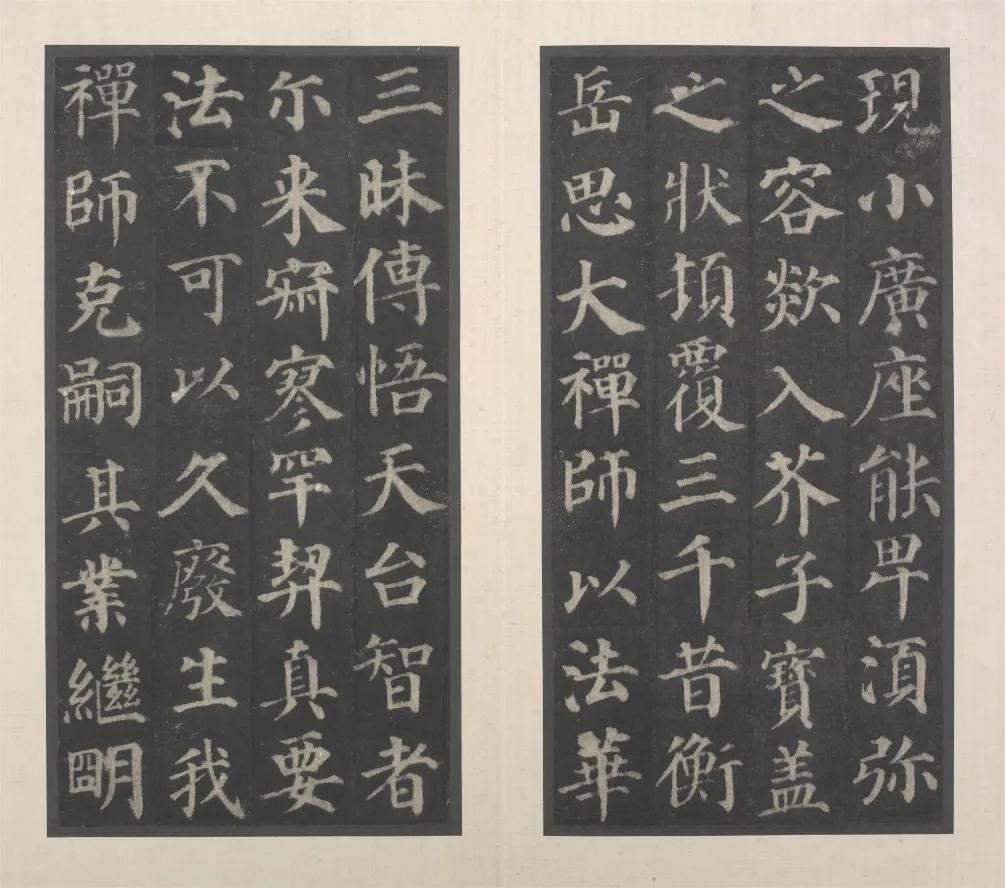 現小廣座能卑湏弥
之容欻入芥子寶盖
之狀頓覆三千昔衡
岳思大禪師以法華
三昧傳悟天台智者
尔来寂寥罕契真要
法不可以久廢生我
禪師克嗣其業繼明